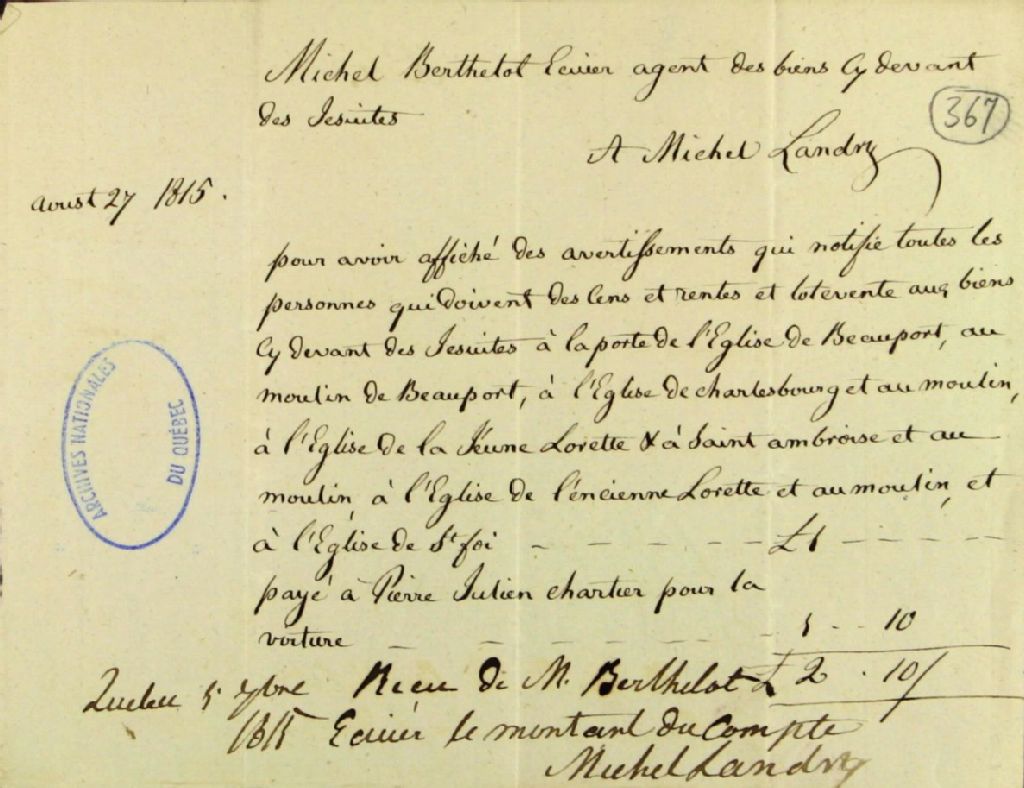 Michel Berthelot Ecuier agent des biens Cy devant
des Jesuites
367
A Michel Landry
aoust 27 1815.
pour avoir affiché des avertissements qui notifie toutes les
personnes qui doivent des Cens et rentes et lotevente aux biens
Cy devant des Jesuites à la porte de l'Eglise de Beauport, au
moulin de Beauport, à l'Eglise de charlesbourg et au moulin,
à l'Eglise de la Jeune Lorette & à Saint ambroise et au
moulin, à l'Eglise de l'encienne Lorette et au moulin, et
à l'Église de St foi - - - - - £1 - - - - -
payé à Pierre Julien chartier pour la
voiture - - - - - 1 - - 10
ARCHIVES NATIONALES
DU QUÉBEC
Quebec 5 7bre Recu de M. Berthelot £ 2 . 10/
1815 Ecuiér le montant du Compte
Michel Landry